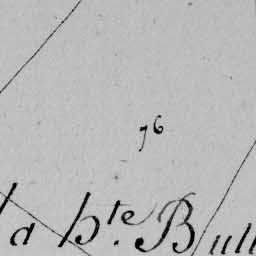 76
la hte. Bull